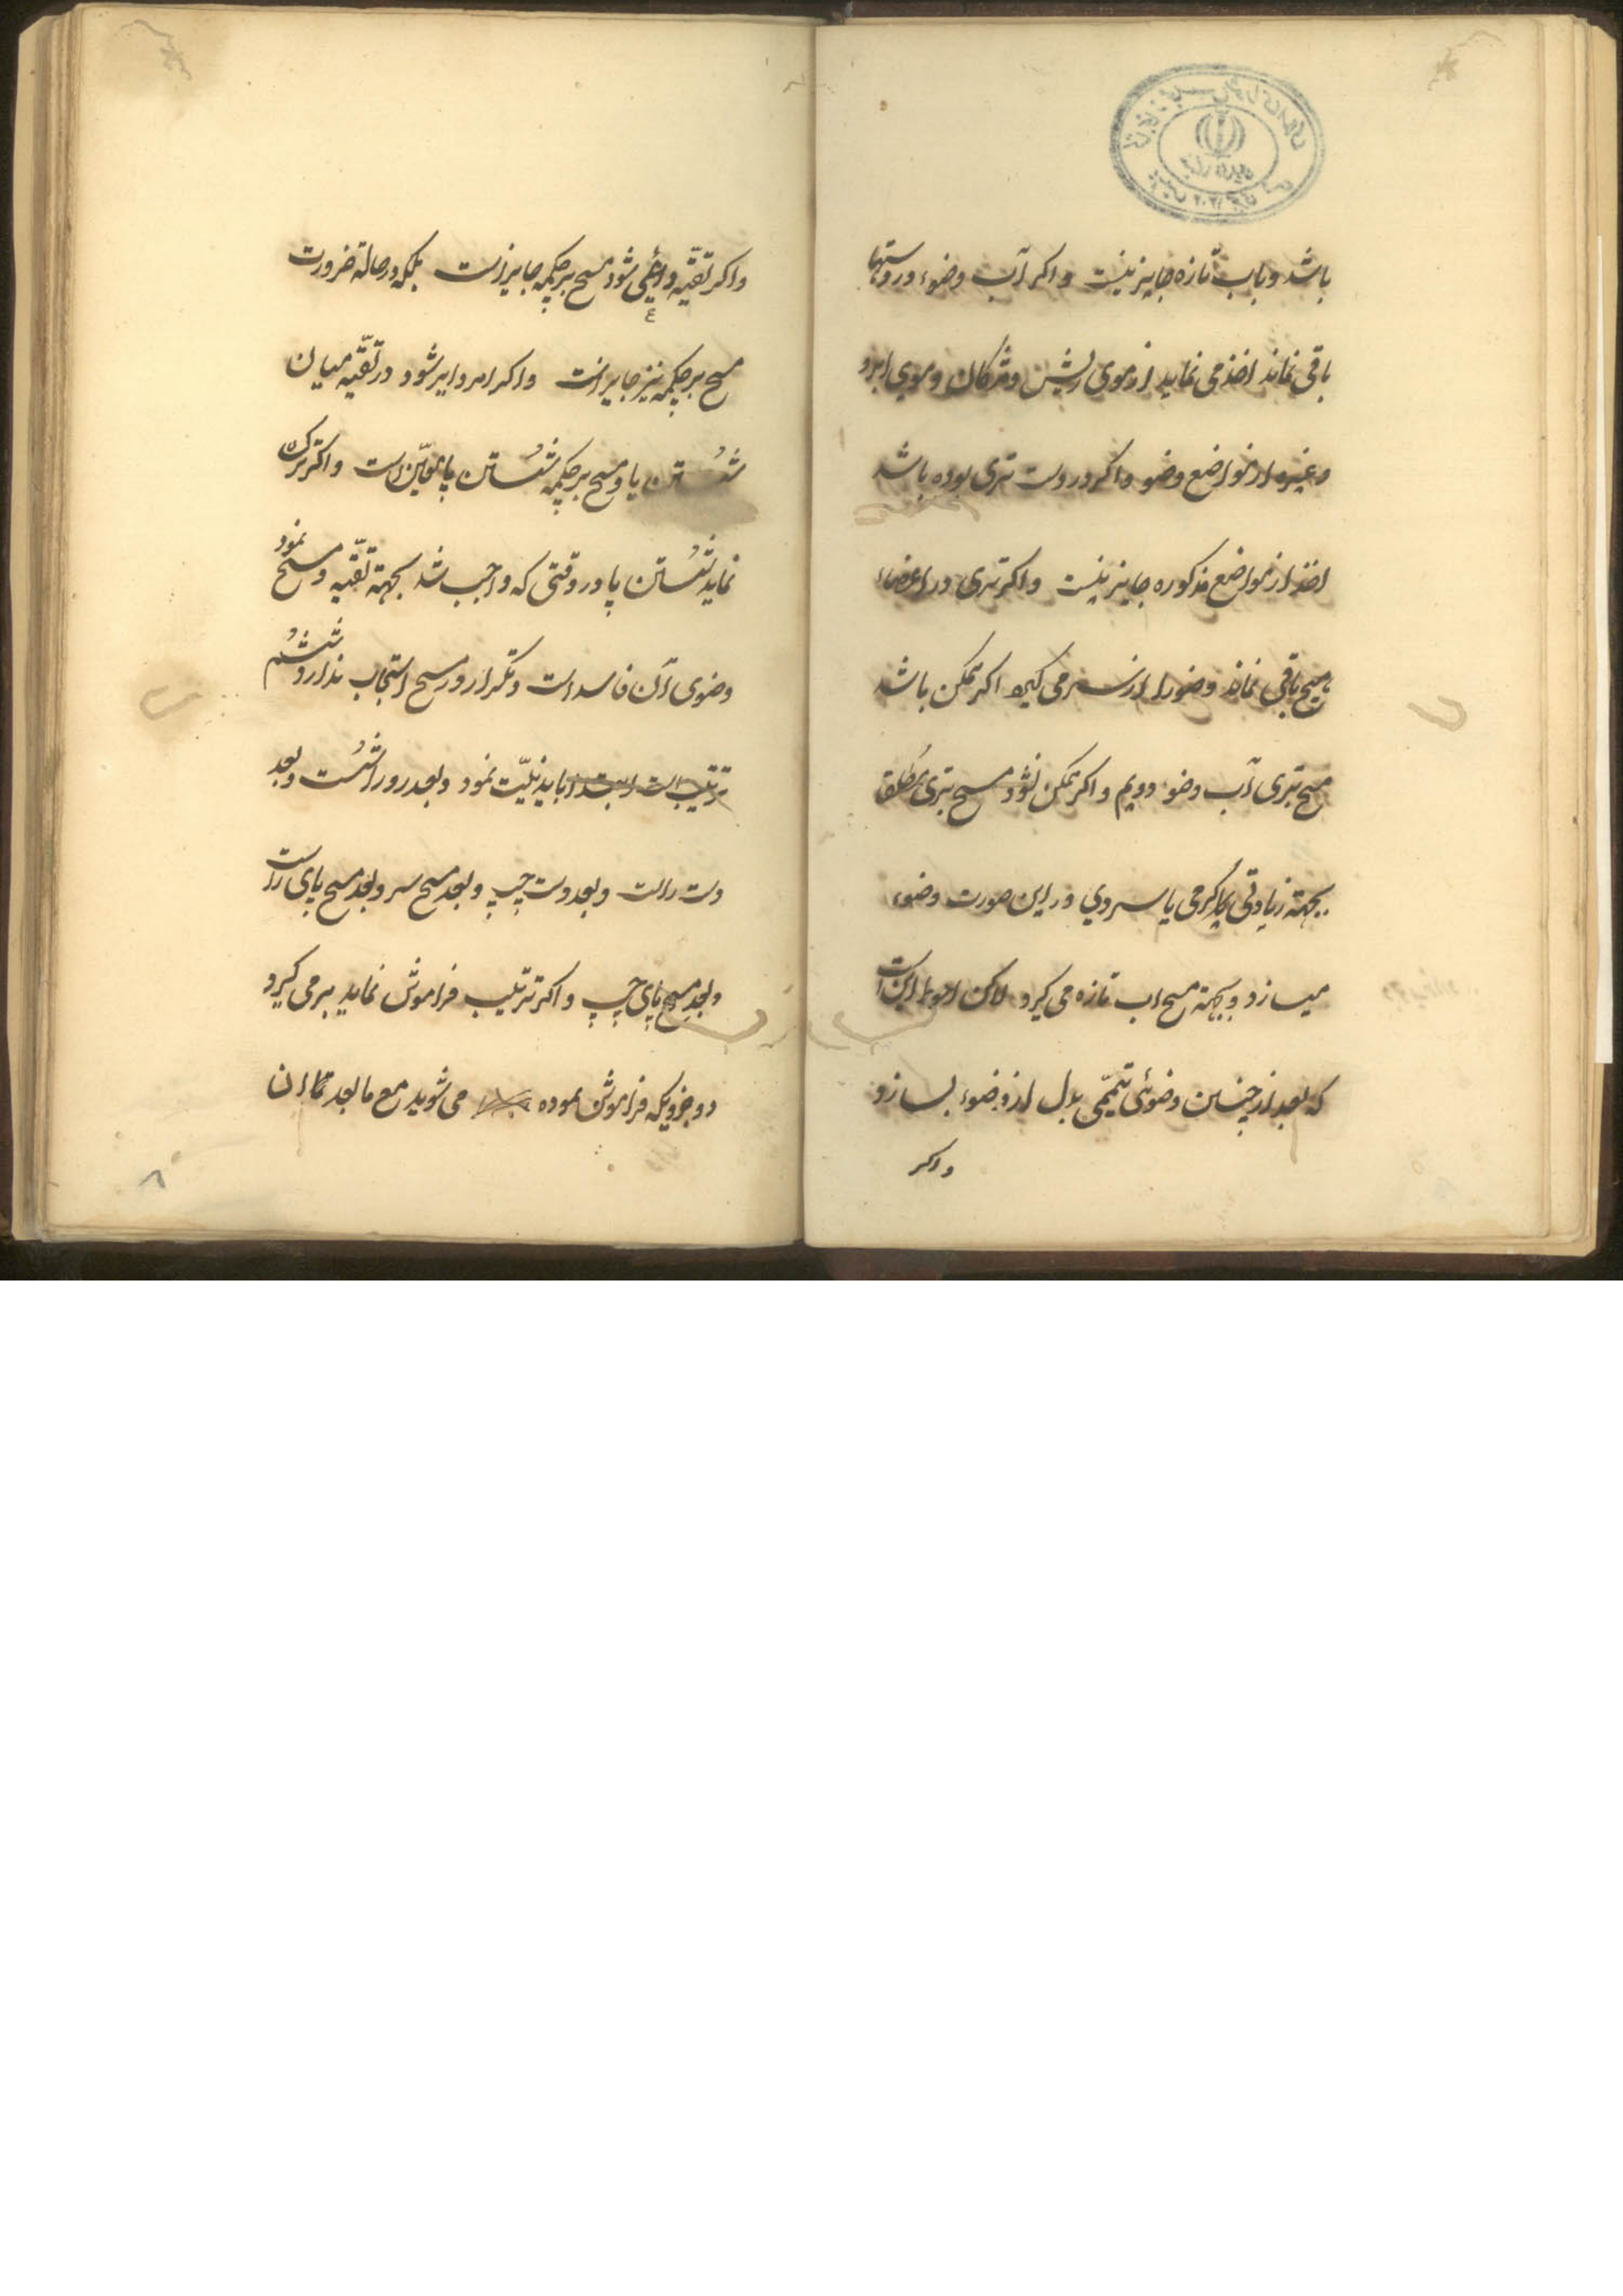 باشد و باب تازه جایز نیست و اکر آب وضوء در دستها
باقی نماند اخذ می نماید از موی ریش و مژکان و موی ابرو
و غیره از مواضع وضو و اکر در دست تری بوده باشد
اخذ از مواضع مذکوره جایز نیست و اکر تری در اعضاء
باقی نماند وضو را از سر می کیرد اکر ممکن باشد
مسح بتری آب وضو دویم و اکر ممکن نشود مسح بتری مطلق
بجهة زیادتی یا سردی در این صورت وضوء
میسازد و بجهة مسح اب تازه می کیرد لاکن احوط این است
که بعد از چنین وضوئی تیممی بدل از وضوء بسازد
و اکر
و اکر تقیه داعی شود مسح بر چکمه جایز است بلکه در حالة ضرورت
مسح بر چکمه نیز جایز است و اکر امر دایر شود در تقیه میان
شستن پا و مسح بر چکمه شستن پا متعین است و اکر ترک
نماید شستن پا در وقتی که واجب شد بجهة تقیه و مسح نمود
وضوی آن فاسد است و تکرار در مسح استحباب ندارد ششم
ترتیب است باید نیت نمود و بعد رو را شست و بعد
دست راست و بعد دست چپ و بعد مسح سر و بعد مسح پای راست
و بعد مسح پای چپ و اکر ترتیب فراموش نماید بر می کیرد
جزویکه فراموش نموده می شوید مع ما بعد
۸